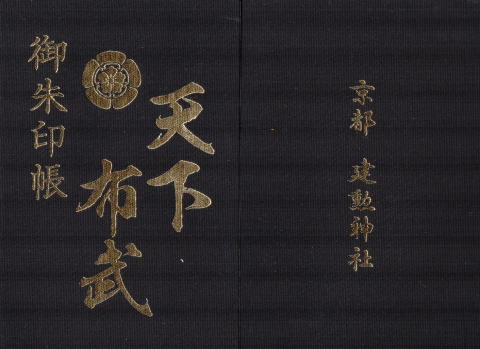 京都 建勲神社
天下
布武
御朱印帳